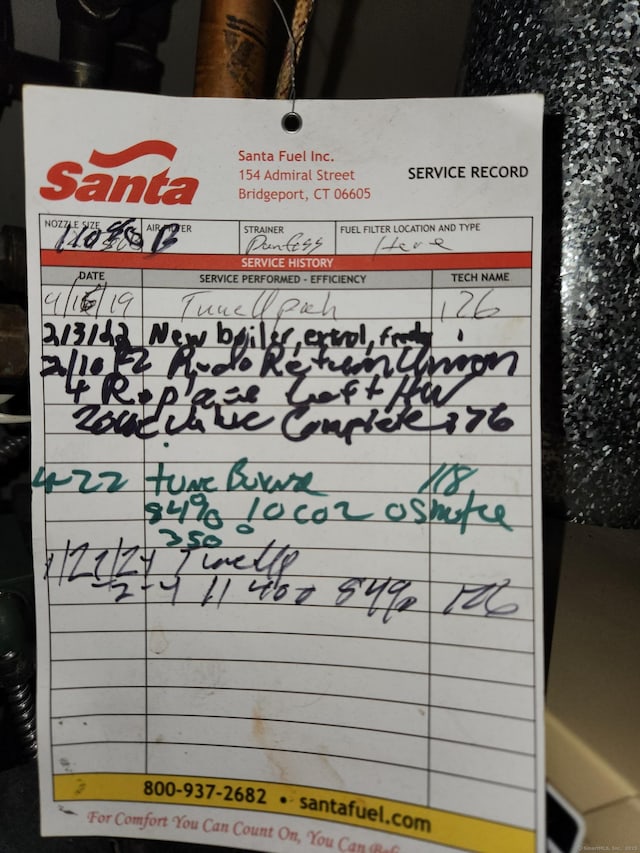 Santa
Santa Fuel Inc.
154 Admiral Street
Bridgeport, CT 06605
SERVICE RECORD
NOZZLE SIZE AIR FILTER STRAINER FUEL FILTER LOCATION AND TYPE
110 80 B
SERVICE HISTORY
DATE SERVICE PERFORMED - EFFICIENCY TECH NAME
4/16/19 126
2/3/22 New boiler, extrol,
2/10 22 Redo Return Union
+ Replace Left HW
Zone Valve Complete 176
4-22 tune Burner 118
84% 10 CO2 0 Smoke
350°
1/22/24 TuneUp
-2-4 11 400 84%
800-937-2682 • santafuel.com
For Comfort You Can Count On, You Can